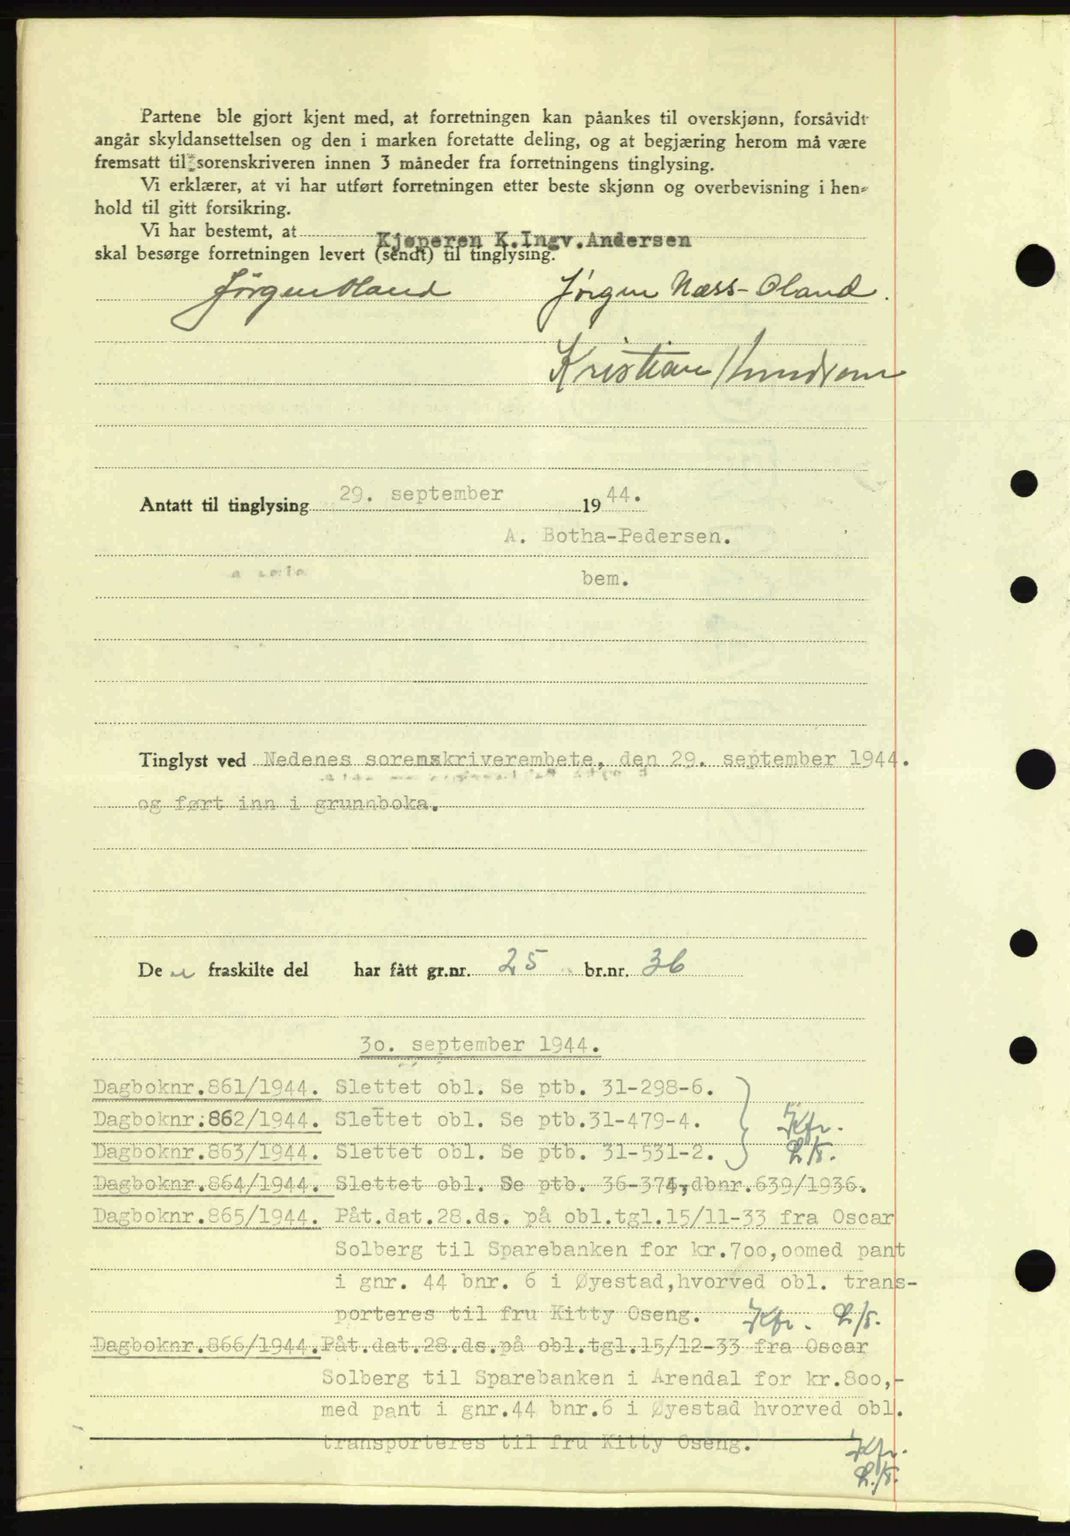 Partene ble gjort kjent med, at forretningen kan påankes til overskjønn, forsåvidt
angår skyldansettelsen og den i marken foretatte deling, og at begjæring herom må være
fremsatt til sorenskriveren innen 3 måneder fra forretningens tinglysing.
Vi erklærer, at vi har utført forretningen etter beste skjønn og overbevisning i hen-
hold til gitt forsikring.
Vi har bestemt, at Kjøperen K.Ingv.Andersen
skal besørge forretningen levert (sendt) til tinglysing.
Jørgen Oland Jørgen Næss-Oland.
Kristian Knudsen
Antatt til tinglysing 29. september 1944.
A. Botha-Pedersen.
bem.
Tinglyst ved Nedenes sorenskriverembete, den 29. september 1944.
og ført inn i grunnboka.
De n fraskilte del har fått gr.nr. 25 br.nr. 36
30. september 1944.
Dagboknr.861/1944. Slettet obl. Se ptb. 31-298-6.
Dagboknr.862/1944. Slettet obl. Se ptb.31-479-4. Kfr.
Dagboknr.863/1944. Slettet obl. Se ptb. 31-531-2.
Dagboknr.864/1944. Slettet obl. Se ptb. 36-374,dbnr.639/1936.
Dagboknr.865/1944. Påt.dat.28.ds. på obl.tgl.15/11-33 fra Oscar
Solberg til Sparebanken for kr.700,oomed pant
i gnr. 44 bnr. 6 i Øyestad,hvorved obl. trans-
porteres til fru Kitty Oseng. Kfr.
Dagboknr.866/1944.Påt.dat.28.ds.på obl.tgl.15/12-33 fra Oscar
Solberg til Sparebanken i Arendal for kr.800,-
med pant i gnr.44 bnr.6 i Øyestad hvorved obl.
transporteres til fru Kitty Oseng. Kfr.